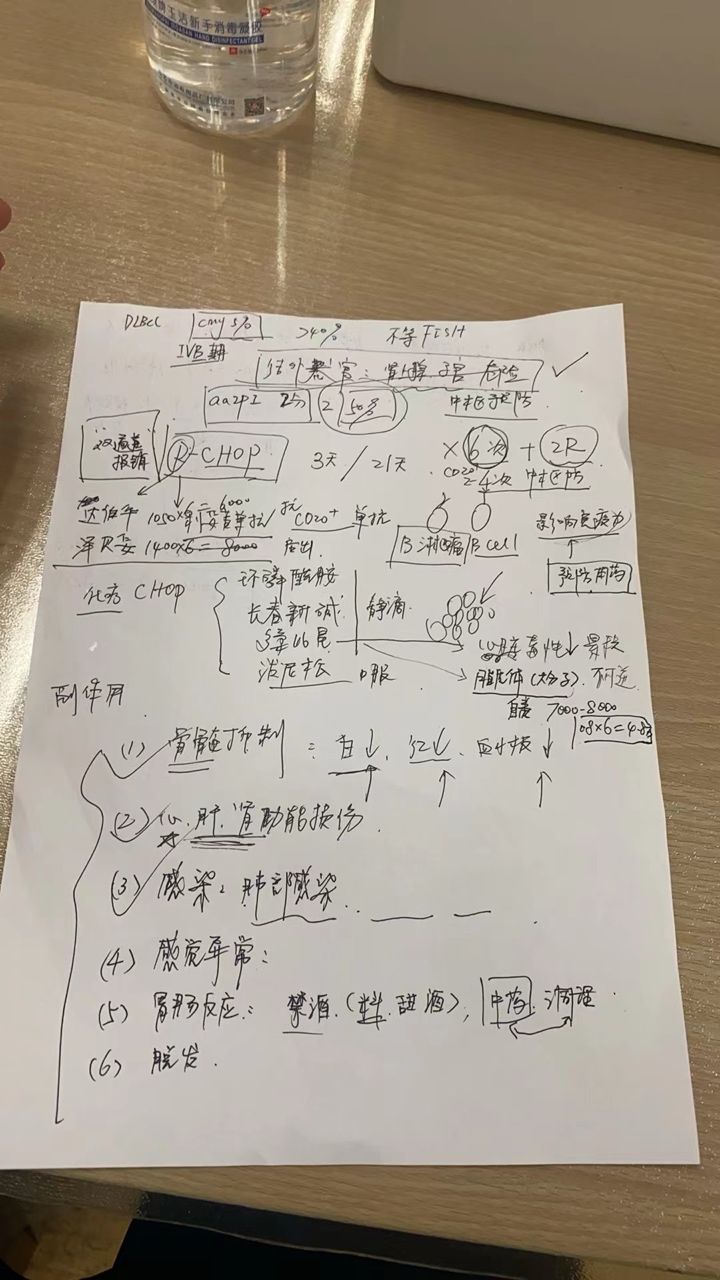 牌玉洁新手消毒凝胶
HAND DISINFECTANT GEL
DLBCL cmyc% >40% 不等FISH
IVB期
结外器官: 肾上腺 子宫 危险
aaIPI 2分 2 50% 中枢预防
报销 R-CHOP 3天/21天 ×6次 + 2R
CD20+ 2-4次 中枢预防
达伯华 1050×6=6000 抗CD20+单抗 影响免疫力
泽贝妥 1400×6=8000 B淋巴瘤 B cell
化疗 CHOP 环磷酰胺
长春新碱 静滴
泼尼松 口服 心脏毒性↓
脂质体(大分子) 不可逆
自费 7000-8000
0.8×6=4.8万
副作用
(1) 骨髓抑制: 白↓. 红↓. 血小板↓
(2) 心. 肝. 肾功能损伤.
(3) 感染: 肺部感染
(4) 感觉异常:
(5) 胃肠反应: 禁酒.(料. 甜酒), 中药 调理
(6) 脱发.